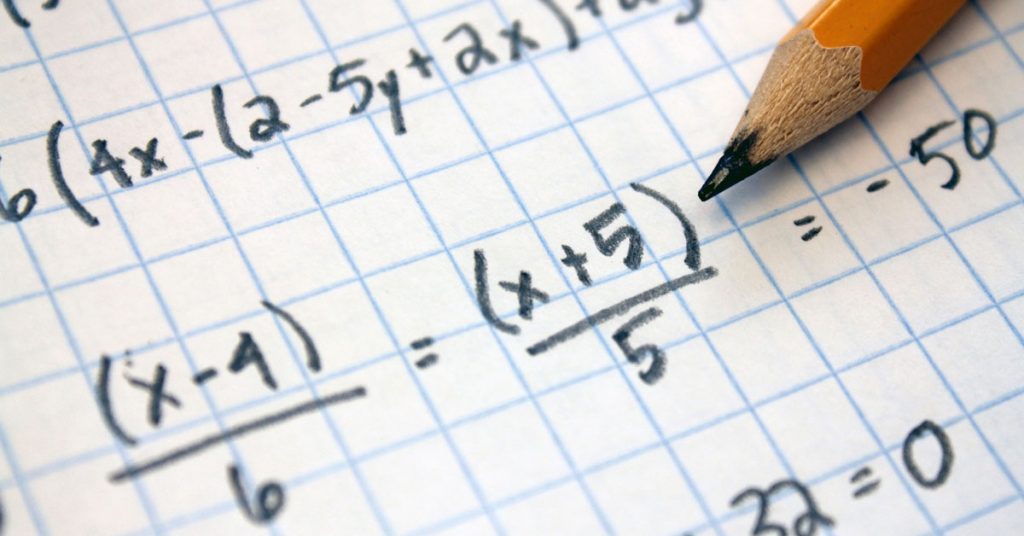 6(4x-(2-5y+2x)+
= -50
(x-4)/6 = (x+5)/5
32=0